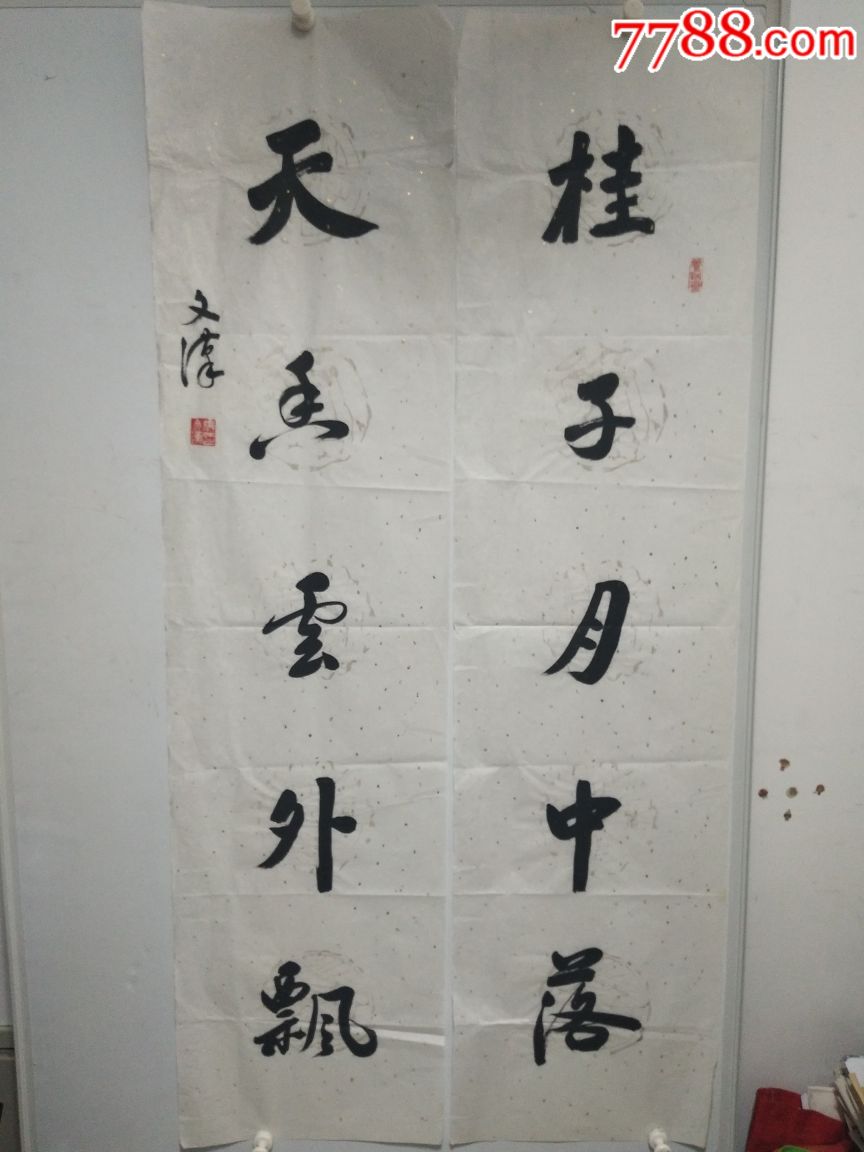 7788.com
桂子月中落
天香雲外飄
文漢